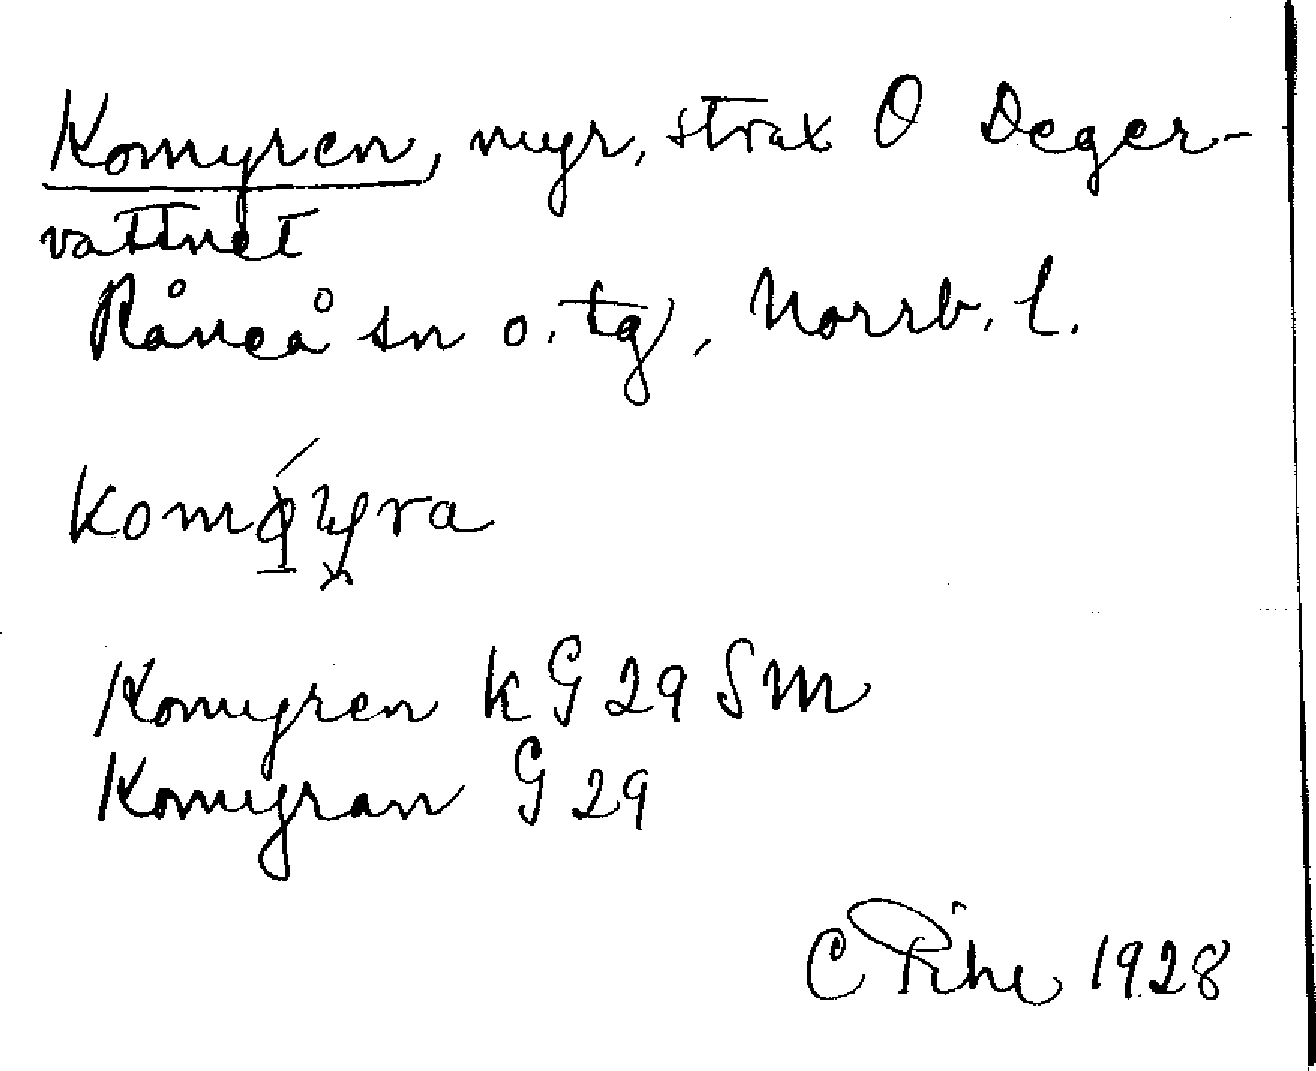 Komyren, myr, strax O Deger-
vattnet
Råneå sn o. tg, Norrb. l.
Komyren k G 29 SM
Komyran G 29
C Pihl 1928